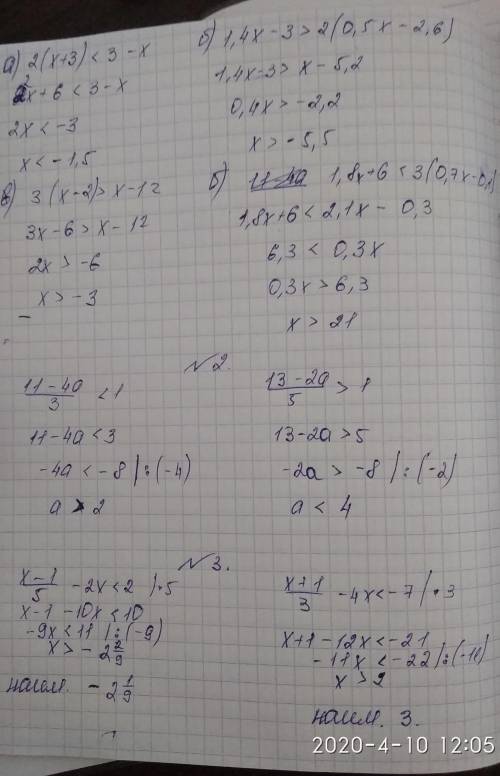 а) 2(x+3) < 3 - x
2x+6 < 3 - x
2x < -3
x < -1,5
б) 1,4x - 3 > 2(0,5x - 2,6)
1,4x-3 > x - 5,2
0,4x > -2,2
x > -5,5
в) 3(x-2) > x - 12
3x - 6 > x - 12
2x > -6
x > -3
б) 11-4a 1,8x+6 < 3(0,7x-0,1)
1,8x+6 < 2,1x - 0,3
6,3 < 0,3x
0,3x > 6,3
x > 21
№2.
(11-4a)/3 < 1
11-4a < 3
-4a < -8 | : (-4)
a > 2
(13-2a)/5 > 1
13-2a > 5
-2a > -8 | : (-2)
a < 4
№3.
(x-1)/5 - 2x < 2 | · 5
x-1 - 10x < 10
-9x < 11 | : (-9)
x > -2 2/9
наим. -2 1/9
(x+1)/3 - 4x < -7 | · 3
x+1 - 12x < -21
-11x < -22 | : (-11)
x > 2
наим. 3.
2020-4-10 12:05